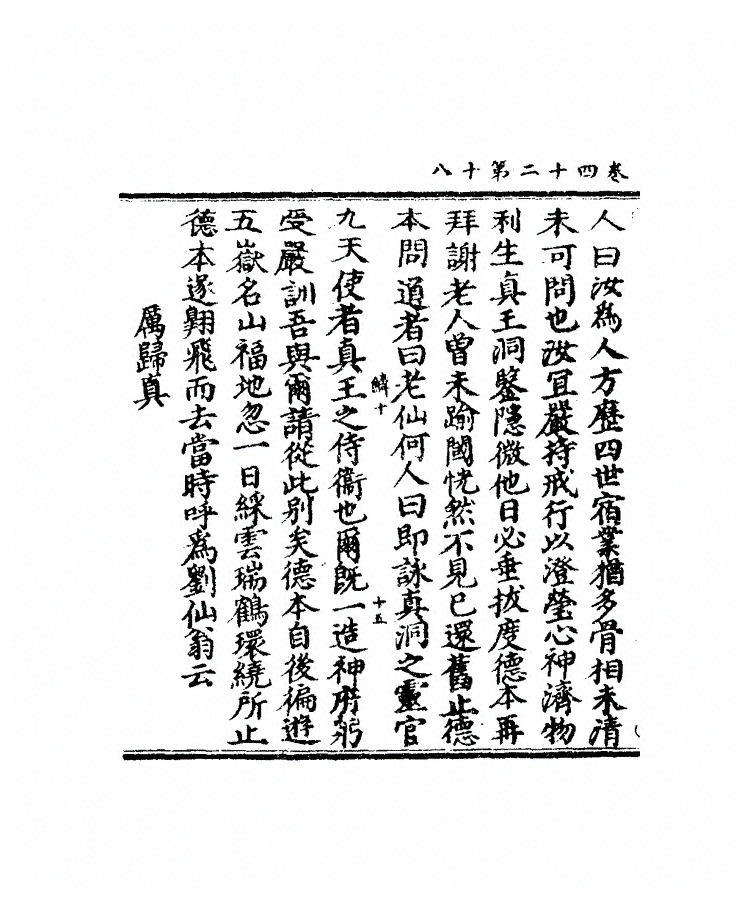 卷四十二第十八
人曰汝為人方歷四世宿業猶多骨相未清
未可問也汝宜嚴持戒行以澄瑩心神濟物
利生真王洞鑒隱微他日必垂拔度德本再
拜謝老人曾未踰閾恍然不見已還舊止德
本問道者曰老仙何人曰即詠真洞之靈官
鱗十
十五
九天使者真王之侍衞也爾既一造神府躬
受嚴訓吾與爾請從此別矣德本自後徧遊
五嶽名山福地忽一日綵雲瑞鶴環繞所止
德本遂翶飛而去當時呼為劉仙翁云
厲歸真